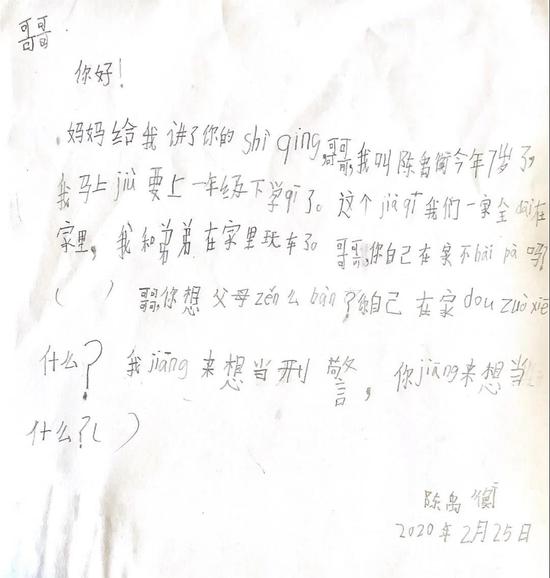 哥哥
你好!
妈妈给我讲了你的shì qing,哥哥,我叫陈禹衡今年7岁了,
我马上jiù要上一年级下学qī了。这个jià qī我们一家全dāi在
家里,我和弟弟在家里玩车了。哥哥,你自己在家不hài pà吗?
( ) 哥哥,你想父母zěn么bàn?你自己在家dōu zuò xiē
什么?我jiāng来想当刑警,你jiāng来想当
什么?( )
陈禹衡
2020年2月25日